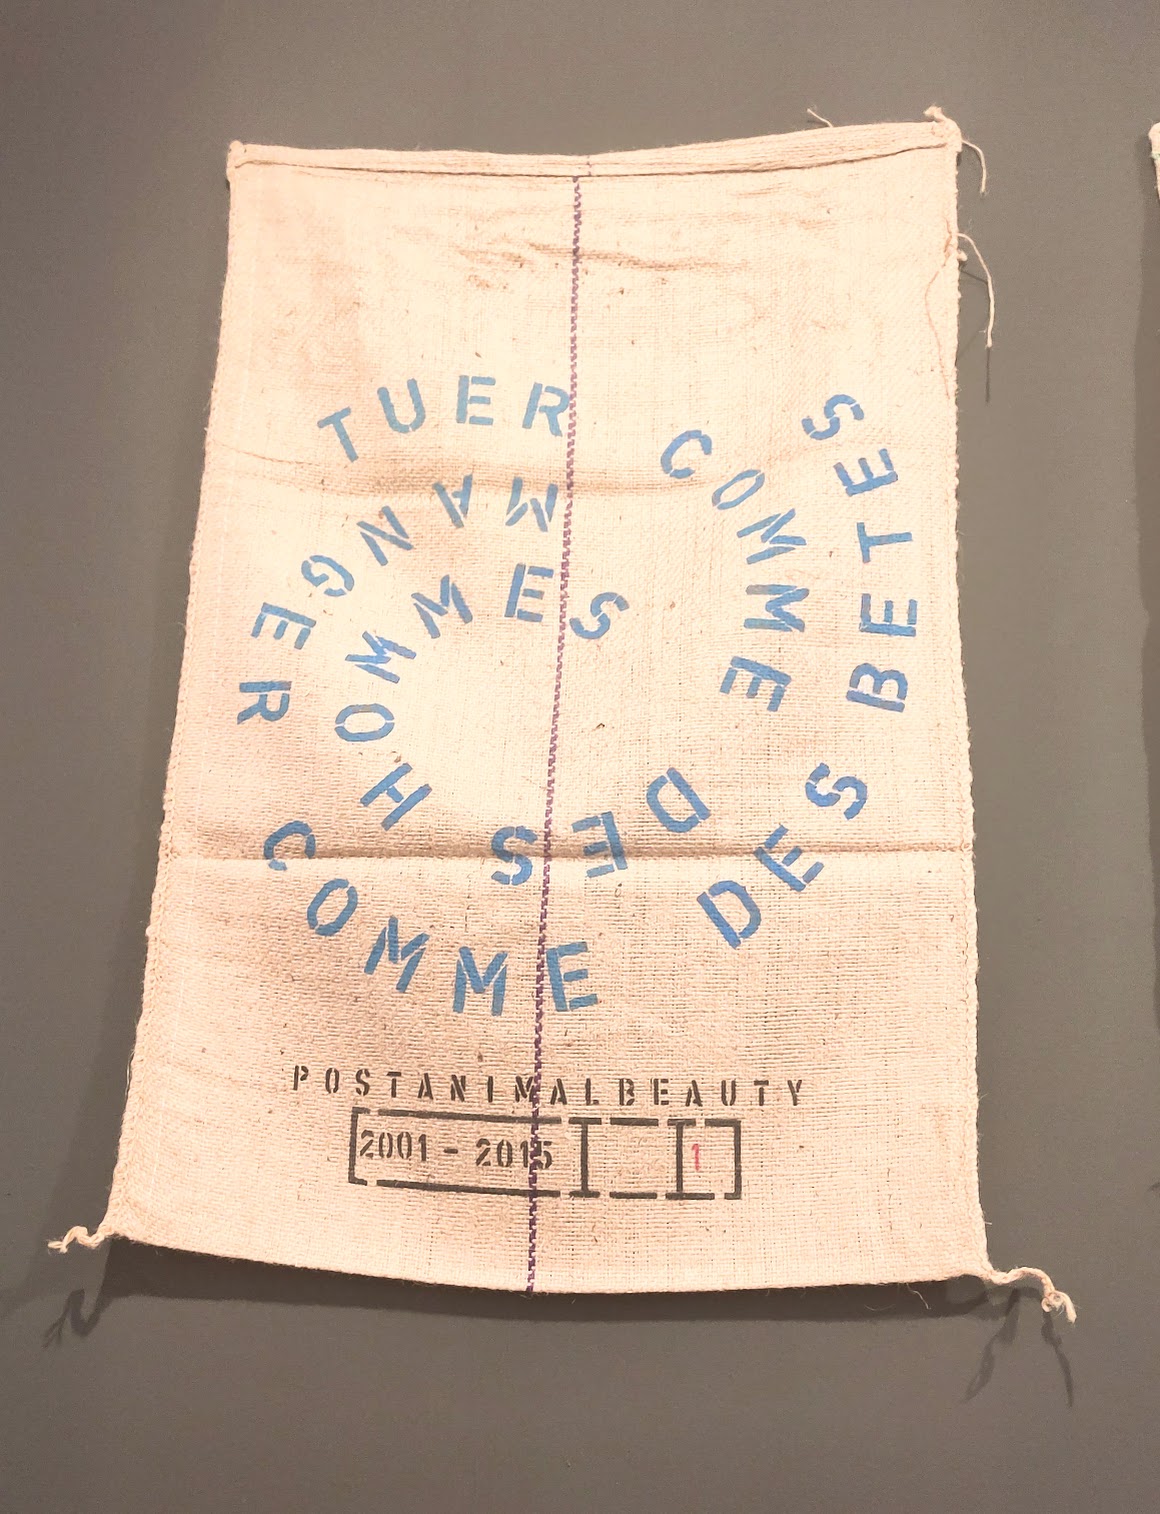 TUER COMME DES HOMMES
MANGER COMME DES BETES
POSTANIMALBEAUTY
2001 - 2015 1